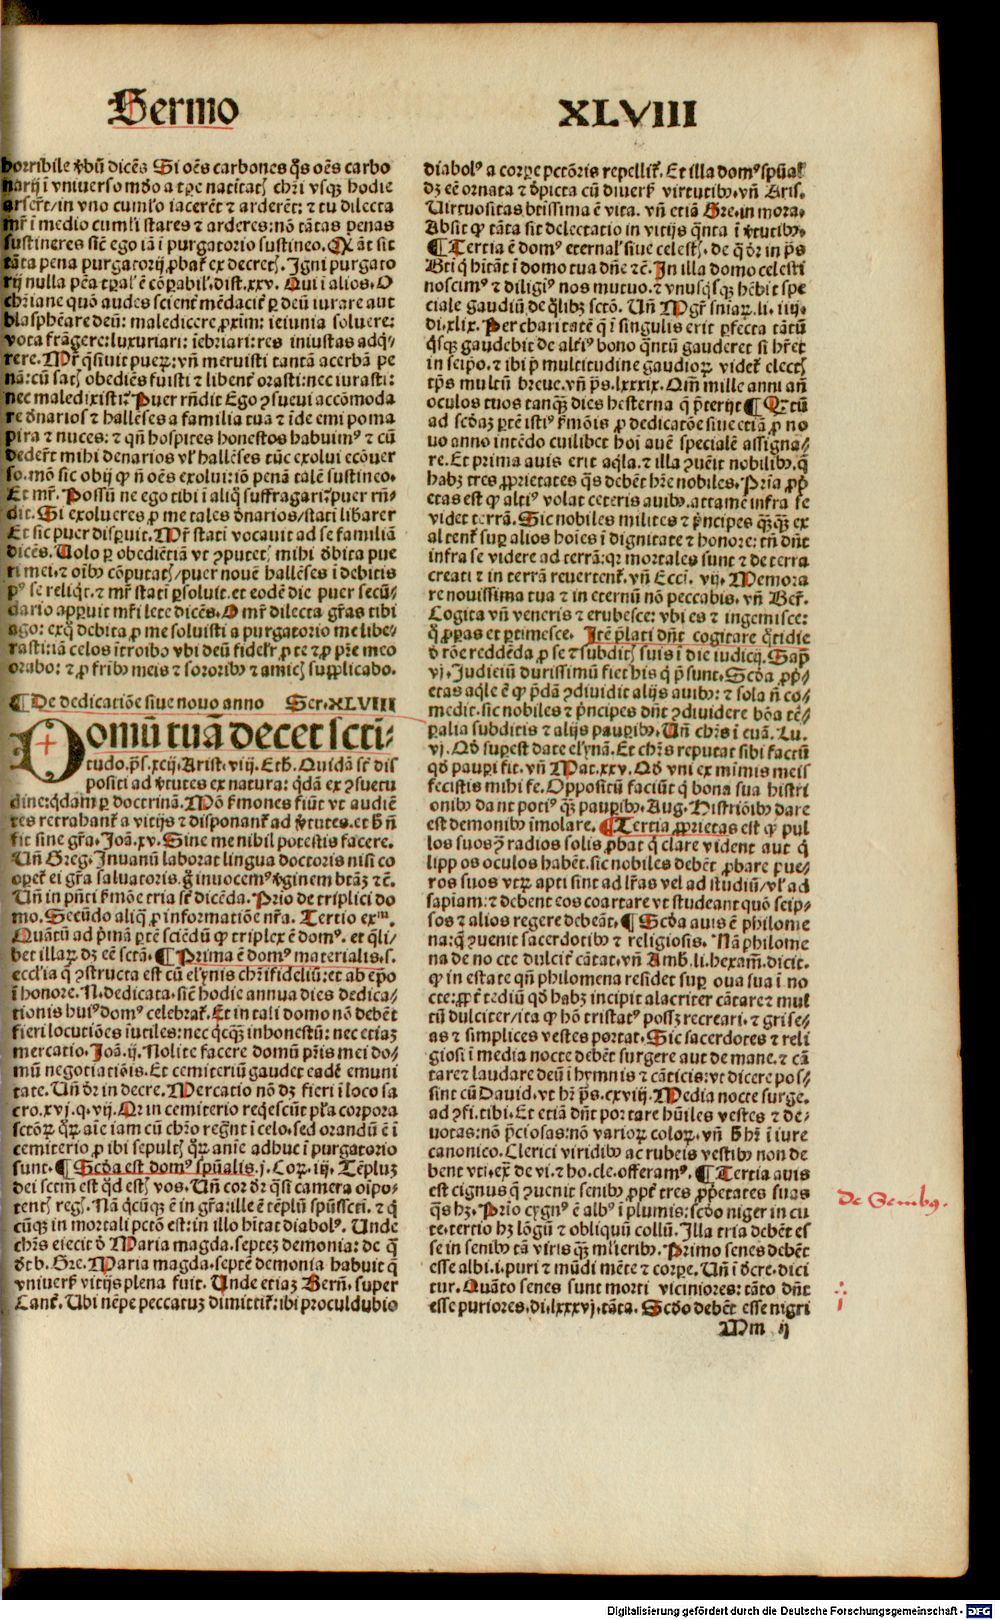 Sermo XLVIII
horribile v̄bū dicēs Si oēs carbones q̄s oēs carbo
narij ī vniuerso mūdo a tpe natiuitatis chr̄i vsq̣ hodie
arserūt/in vno cumulo iacerēt ⁊ arderēt: ⁊ tu dilecta
mr̄ ī medio cumuli stares ⁊ arderes: nō tātas penas
sustineres sicut ego iā ī purgatorio sustineo. Q ān̄t sit
tāta pena purgatorij ꝓbat̄ ex decretis. Igni purgato
rij nulla pēa tp̄al' ē cōpabil'. dist. xxv. Qui ī alios. O
chr̄iane quō audes scient̄ mēdacit̄ ꝑ deū iurare aut
blasphēare deū: maledicere ꝓxim: ieiunia soluere:
vota frāgere: luxuriari: īebriari: res iniustas adq̄/
rere. Mr̄ q̄siuit puerꝝ: vn̄ meruisti tantā acerbā pe
nā: cū satis obediēs fuisti ⁊ libent̄ orasti: nec iurasti:
nec maledixisti? Puer rn̄dit Ego ꝯsueui accōmoda
re d̄narios ⁊ hallēses a familia tua ⁊ īde emi poma
pira ⁊ nuces: ⁊ qn̄ hospites honestos habuim⁹ ⁊ cū
dederūt mihi denarios vl' hallēses tūc exolui ecōuer
so. mō sic obij qͥ n̄ oēs exolui: iō penā talē sustineo.
Et mr̄. Possū ne ego tibi ī aliq̄ suffragari? puer rn̄/
dit. Si exolueres ꝓ me tales d̄narios/statī libarer
Et sic puer disparuit. Mr̄ statī vocauit ad se familiā
dicēs. Uolo ꝑ obediētiā vt ꝯputetis mihi d̄bita pue
ri mei. ⁊ oībꝰ cōputatis/puer nouē hallēses ī debitis
p⁹ se reliq̄t. ⁊ mr̄ statī ꝑsoluit. et eodē die puer secū/
dario apparuit mr̄i lete dicēs. O mr̄ dilecta gr̄as tibi
ago: exq̄ debita ꝓ me soluisti a purgatorio me libe/
rasti: iā celos ītroibo vbi deū fidelr̄ ꝓ te ⁊ ꝓ pr̄e meo
orabo: ⁊ ꝓ fr̄ibꝰ meis ⁊ sororibꝰ ⁊ amicis supplicabo.
¶ De dedicatiōe siue nouo anno Ser. XLVIII
Domū tuā decet scti/
tudo. ps̄. xcij. Arist. viij. Eth. Quidā sūt dis
positi ad v̄tutes ex natura: q̄dā ex ꝯsuetu
dine: q̄dam ꝑ doctrinā. Mō s̄mones fiūt vt audiē
tes retrahant̄ a vitijs ⁊ disponant̄ ad v̄tutes. et h̄ n̄
fit sine gr̄a. Joā. xv. Sine me nihil potestis facere.
Un̄ Greg. Inuanū laborat lingua doctoris nisi co
opet̄ ei gr̄a saluatoris. g̊ inuocem⁹ v̄ginem btāȝ ⁊c̄.
Un̄ in pn̄ti s̄mōe tria sūt dicēda. Prio de triplici do
mo. Secūdo aliq̄ ꝓ informatiōe nr̄a. Tertio exᵐ.
Quātū ad pͥmā ꝑtē sciēdū qͥ triplex ē dom⁹. et q̄li/
bet illaꝝ dȝ eē sctā. ¶ Prima ē dom⁹ materialis. s.
eccl'ia q̄ ꝯstructa est cū el'ynis chr̄ifideliū: et ab ep̄o
ī honore. N. dedicata. sicut hodie annua dies dedica/
tionis hui⁹ dom⁹ celebrat̄. Et in tali domo nō debēt
fieri locutiōes īutiles: nec q̄cq̄ȝ inhonestū: nec etiaȝ
mercatio. Joā. ij. Nolite facere domū pr̄is mei do/
mū negotiatiōis. Et cemiteriū gaudet eadē emuni
tate. Un̄ dr̄ in decre. Mercatio nō dȝ fieri ī loco sa
cro. xvj. q. vij. Qr in cemiterio reqescūt pl'a corpora
sctōꝝ qꝝ aīe iam cū chr̄o regnāt ī celo. sed orandū ē ī
cemiterio ꝓ ibi sepultis qꝝ anīe adhuc ī purgatorio
sunt. ¶ Scd̄a est dom⁹ spūalis. j. Cor. iij. Tēpluȝ
dei sctm̄ est q̄d estis vos. Un̄ cor dr̄ q̄si camera oīpo/
tentis regis. Nā q̄cūqȝ ē in gr̄a: ille ē tēplū spūsscti. ⁊ q̄
cūqȝ in mortali pctō est: in illo hītat diabol⁹. Unde
chr̄s eiecit d̄ Maria magda. septeȝ demonia: de q̄
dr̄h. Gre. Maria magda. septē demonia habuit q̄
vniuersis vitijs plena fuit. Unde etiaȝ Bern̄. super
Cant̄. Ubi nēpe peccatuȝ dimittit̄: ibi proculdubio
diabol⁹ a corpe pctōris repellit̄. Et illa dom⁹ spūal'
dȝ eē ornata ⁊ d̄picta cū diuersis virtutibꝰ. vn̄ Aris.
Uirtuositas btissima ē vita. vn̄ etiā Gre. in mora.
Absit qͥ tāta sit delectatio in vitijs qnta ī v̄tutibꝰ.
¶ Tertia ē dom⁹ eternal' siue celestis. de q̄ dr̄ in ps̄
Bti q̄ hītāt ī domo tua dn̄e ⁊c̄. In illa domo celesti
noscim⁹ ⁊ diligim⁹ nos mutuo. ⁊ vnusqsqȝ hēbit spe
ciale gaudiū de q̄libȝ sctō. Un̄ Mgr̄ sniaꝝ. li. iiij.
di. xlix. Per charitatē q̄ ī singulis erit ꝑfecta tātū
q̄sqȝ gaudebit de alteri⁹ bono q̄ntū gauderet si hr̄et
in seipo. ⁊ ibi p̄ multitudine gaudioꝝ videt̄ electis
tp̄s multū breue. vn̄ ps̄. lxxxix. Qm̄ mille anni an̄
oculos tuos tanq̄ȝ dies hesterna q̄ p̄terijt ¶ Q̄tū
ad scd̄aȝ ꝑtē isti⁹ s̄mōis ꝓ dedicatōe siue etiā ꝓ no
uo anno intēdo cuilibet hoī auē specialē assigna/
re. Et prima auis erit aq̄la. ⁊ illa ꝯuēit nobilibꝰ. q̄
habȝ tres ꝓprietates q̄s debēt hr̄e nobiles. Pria ꝓpͥ
etas est qͥ alti⁹ volat ceteris auibꝰ. attamē infra se
videt terrā. Sic nobiles milites ⁊ pͥncipes q̄ȝq̄ȝ ex
altent̄ sup alios hoīes ī dignitate ⁊ honore: tn̄ dn̄t
infra se videre ad terrā: qr mortales sunt ⁊ de terra
creati ⁊ in terrā reuertent̄. vn̄ Ecci. vij. Memora
re nouissima tua ⁊ in eternū nō peccabis. vn̄ Ber̄.
Cogita vn̄ veneris ⁊ erubesce: vbi es ⁊ ingemisce:
q̊ ꝓpas et ꝑtimesce. Itē p̄lati dn̄t cogitare q̄tidie
d̄ rōe reddēda ꝓ se ⁊ subditis suis ī die iudicij. Sap̄
vj. Judiciū durissimū fiet his q̄ p̄sunt. Scd̄a ꝓpͥ/
etas aq̄le ē qͥ p̄dā ꝯdiuidit alijs auibꝰ: ⁊ sola n̄ co/
medit. sic nobiles ⁊ pͥncipes dn̄t ꝯdiuidere bōa tē/
ꝑalia subditis ⁊ alijs paupibꝰ. Un̄ chr̄s ī euā. Lu.
vj. Qd̄ supest date el'ynā. Et chr̄s reputat sibi factū
qd̄ paupi fit. vn̄ Mat. xxv. Qd̄ vni ex minimis meis
fecistis mihi fe. Oppositū faciūt q̄ bona sua histri
onibꝰ dant poti⁹ q̄ȝ paupibꝰ. Aug. Histriōibꝰ dare
est demonibꝰ īmolare. ¶ Tertia ꝓprietas est qͥ pul
los suos ꝯ̄ radios solis ꝓbat q̄ clare vident aut q̄
lippos oculos habēt. sic nobiles debēt ꝓbare pue/
ros suos vtꝝ apti sint ad lr̄as vel ad studiū/vl' ad
sapiam: ⁊ debent eos coartare vt studeant quō seip/
sos ⁊ alios regere debeāt. ¶ Scd̄a auis ē philome
na: q̄ ꝯuenit sacerdotibꝰ ⁊ religiosis. Nā philome
na de nocte dulcit̄ cātat. vn̄ Amb. li. hexam̄. dicit.
qͥ in estate qn̄ philomena residet sup oua sua ī no
cte: ꝓpt̄ tediū qd̄ habȝ incipit alacriter cātare ⁊ mul
tū dulciter/ita qͥ hō tristat⁹ possȝ recreari. ⁊ grise/
as ⁊ simplices vestes portat. Sic sacerdotes ⁊ reli
giosi ī media nocte debēt surgere aut de mane. ⁊ cā
tare ⁊ laudare deū ī hymnis ⁊ cāticis: vt dicere pos/
sint cū Dauid. vt hr̄ ps̄. cxviij. Media nocte surge.
ad ꝯfi. tibi. Et etiā dn̄t portare hūiles vestes ⁊ de/
uotas: nō p̄ciosas: nō varioꝝ coloꝝ. vn̄ h̄ hr̄ ī iure
canonico. Clerici viridibꝰ ac rubeis vestibꝰ non de
bent vti. ex̄ de vi. ⁊ ho. cle. offeram⁹. ¶ Tertia auis
est cignus q̄ ꝯuenit senibꝰ ꝓpt̄ tres ꝓpͥetates suas
q̄s hȝ. Prio cygn⁹ ē alb⁹ ī plumis: scd̄o niger in cu
te. tertio hȝ lōgū ⁊ obliquū collū. Illa tria debēt es
se in senibꝰ tā viris q̄ȝ mlieribꝰ. Primo senes debēt
esse albi. i. puri ⁊ mūdi mēte ⁊ corpe. Un̄ ī decre. dici
tur. Quāto senes sunt morti viciniores: tāto dn̄t
esse puriores. di. lxxxvj. tāta. Scd̄o debēt esse nigri
Mm ij
de Senibꝰ.
Digitalisierung gefördert durch die Deutsche Forschungsgemeinschaft - DFG